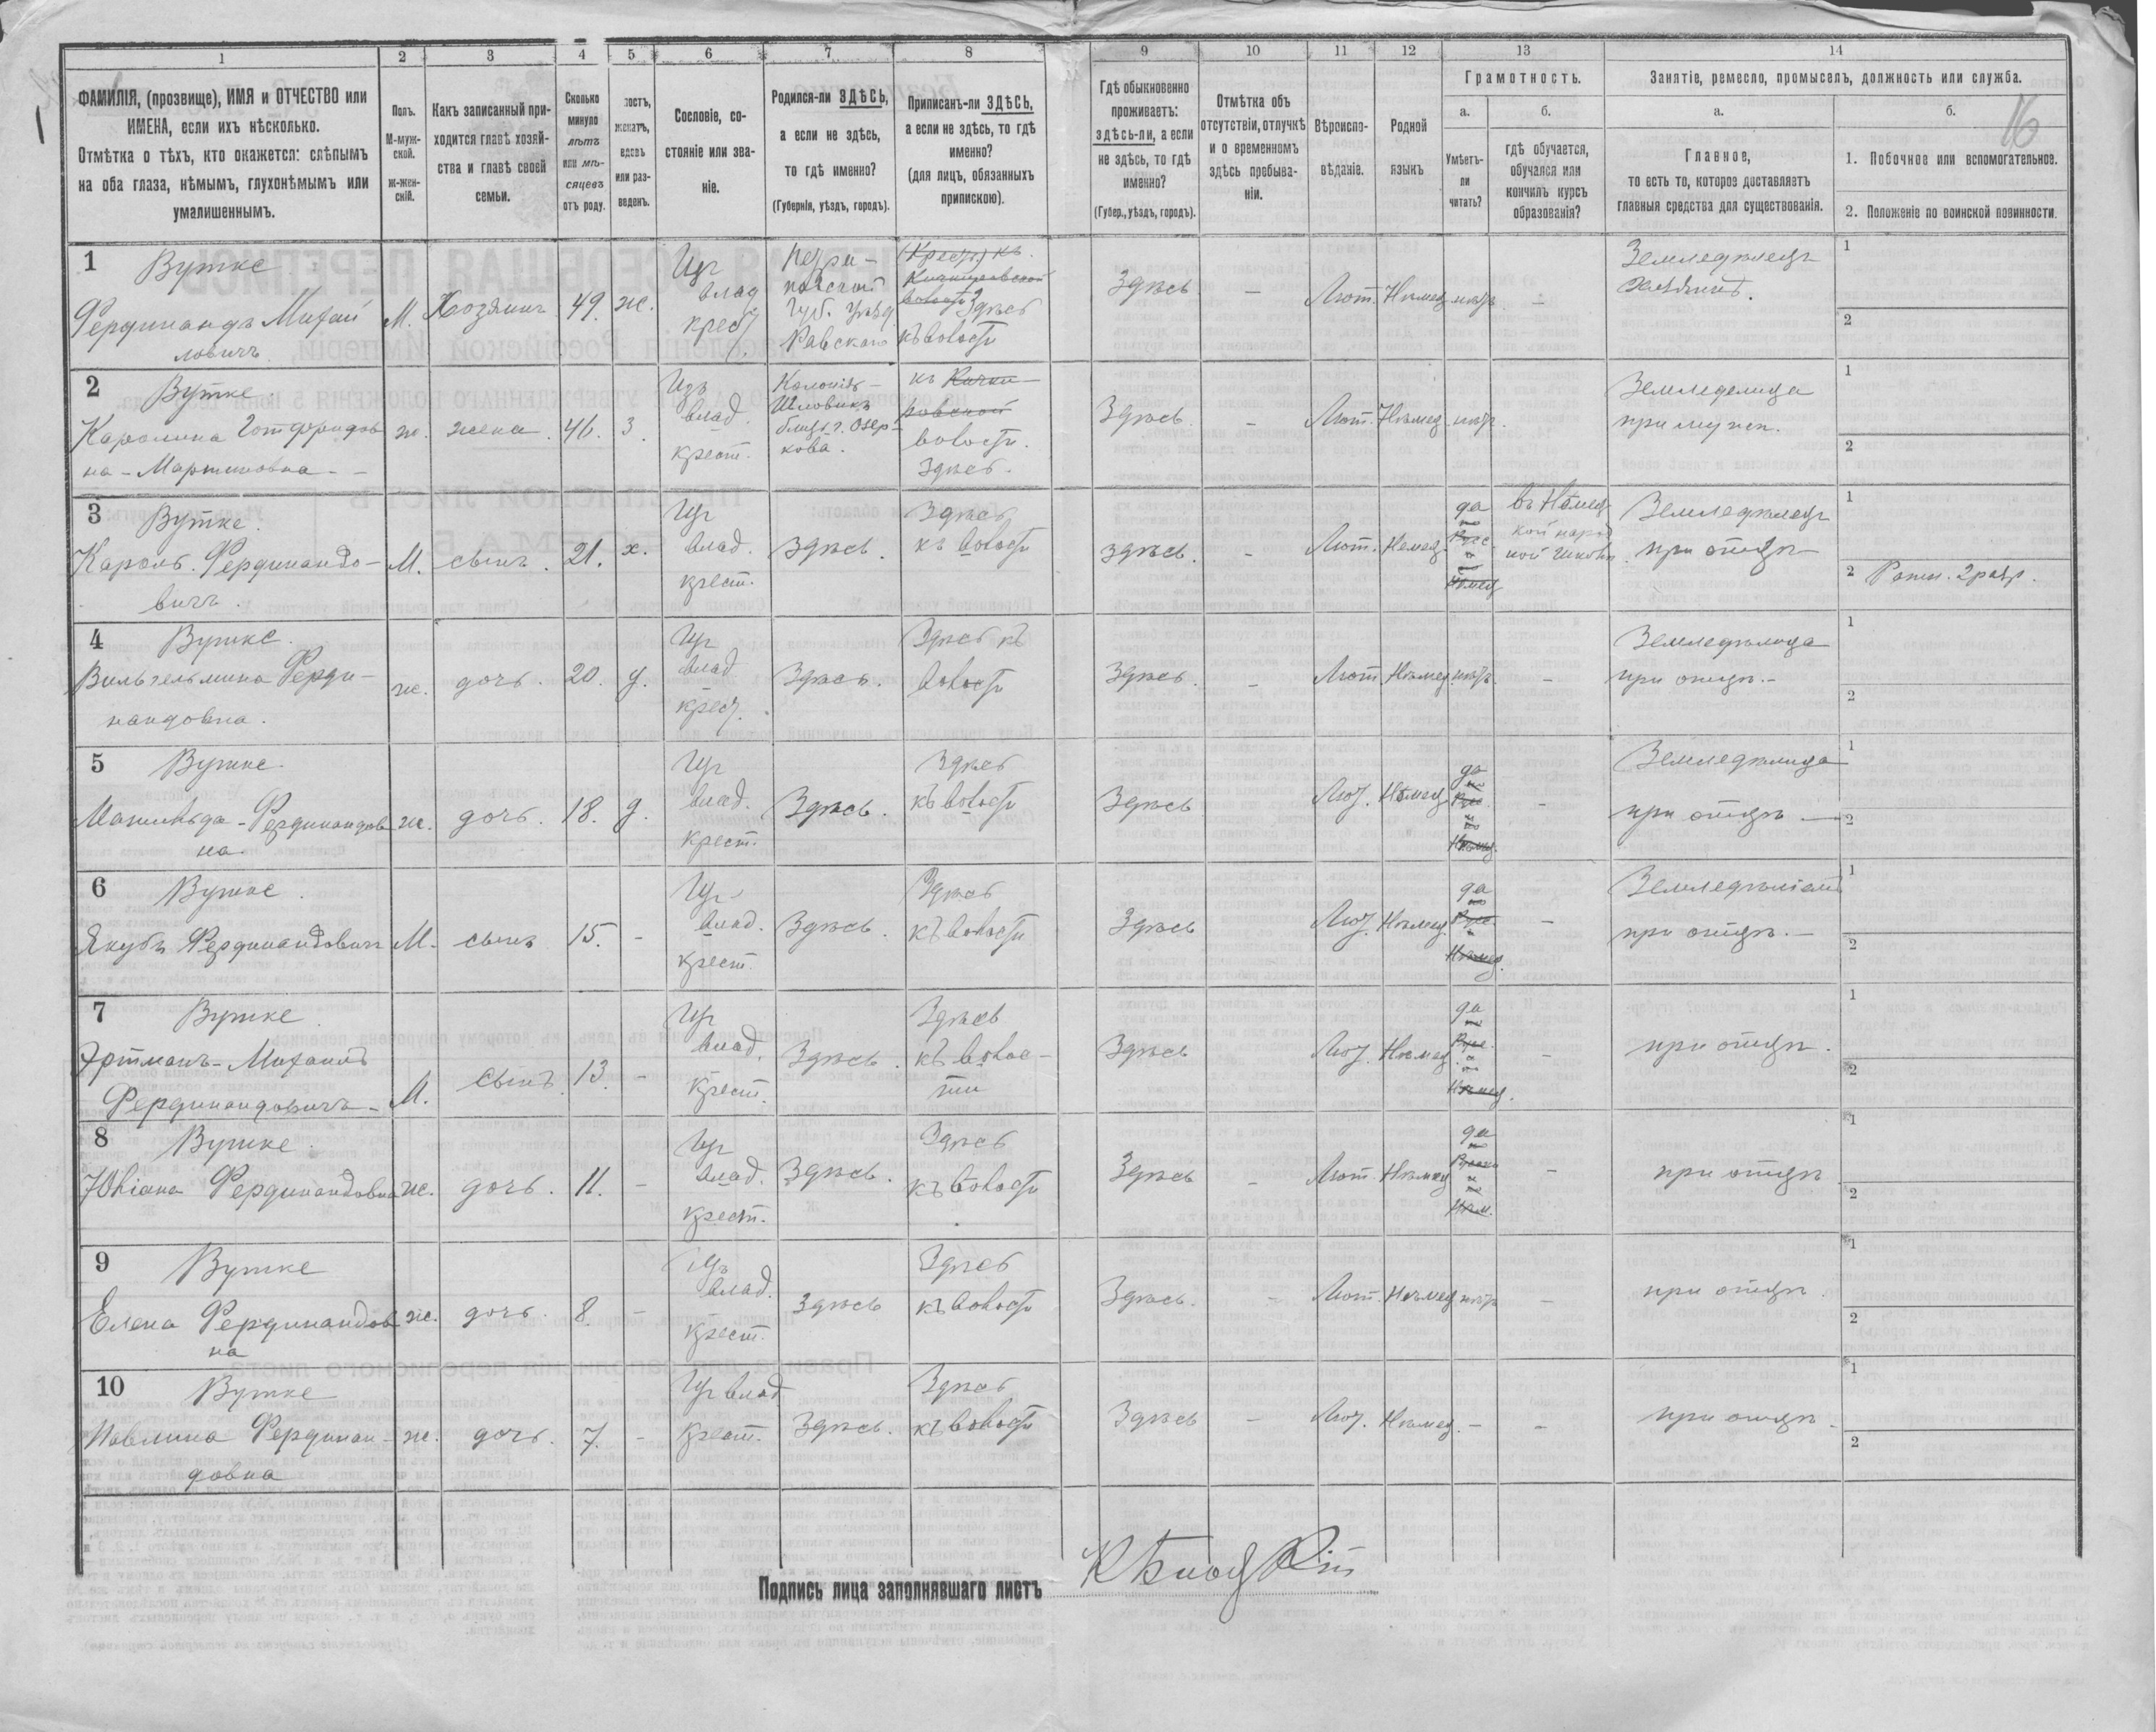 1 2 3 4 5 6 7 8 9 10 11 12 13 14
16
ФАМИЛІЯ, (прозвище), ИМЯ и ОТЧЕСТВО или
ИМЕНА, если ихъ нѣсколько.
Отмѣтка о тѣхъ, кто окажется: слѣпымъ
на оба глаза, нѣмымъ, глухонѣмымъ или
умалишеннымъ.
Полъ.
М-муж-
ской.
Ж-жен-
скій.
Какъ записанный при-
ходится главѣ хозяй-
ства и главѣ своей
семьи.
Сколько
минуло
лѣтъ
или мѣ-
сяцевъ
отъ роду.
лостъ,
женатъ,
вдовъ
или раз-
веденъ.
Сословіе, со-
стояніе или зва-
ніе.
Родился-ли ЗДѢСЬ,
а если не здѣсь,
то гдѣ именно?
(Губернія, уѣздъ, городъ).
Приписанъ-ли ЗДѢСЬ,
а если не здѣсь, то гдѣ
именно?
(для лицъ, обязанныхъ
припискою).
Гдѣ обыкновенно
проживаетъ:
здѣсь-ли, а если
не здѣсь, то гдѣ
именно?
(Губер., уѣздъ, городъ).
Отмѣтка объ
отсутствіи, отлучкѣ
и о временномъ
здѣсь пребыва-
ніи.
Вѣроиспо-
вѣданіе.
Родной
языкъ
Грамотность.
а.
Умѣетъ-
ли
читать?
б.
гдѣ обучается,
обучался или
кончилъ курсъ
образованія?
Занятіе, ремесло, промыселъ, должность или служба.
а.
Главное,
то есть то, которое доставляетъ
главныя средства для существованія.
б.
1. Побочное или вспомогательное.
2. Положеніе по воинской повинности.
1 Вутке
Фердинандъ Михай
ловичъ
М. Хозяинъ 49. ж.
Изъ
влад
крест
Петро-
ковской
Губ. Уѣзд.
Равскаго
Здѣсь
къ волости
Здѣсь — Лют. Нѣмец. нѣтъ —
Земледѣлецъ
1
2
2 Вутке
Каролина Готфридов
на - Мартиновна - -
ж. жена. 46. З.
Изъ
влад.
крест.
Колонія
къ
волости.
Здѣсь.
Здѣсь. - Лют. Нѣмец. нѣтъ.
Земледелица
при мужѣ.
1
2
3 Вутке.
Кароль. Фердинандо-
вичъ.
М. сынъ. 21. х.
Изъ
влад.
крест.
Здѣсь.
Здѣсь
къ волости
Здѣсь. - Лют. Немец.
да
въ Нѣмец
кой народ
ной школѣ
Земледѣлецъ
при отцѣ
1
2 Ратн. 2 разр.
4 Вутке.
Вильгельмина Ферди-
нандовна.
ж. дочь. 20. д.
Изъ
влад
крест.
Здѣсь.
Здѣсь къ
волости
Здѣсь. - Лют. Нѣмец. нѣтъ. -
Земледѣлица
при отцѣ.-
1
2
5 Вутке.
Матильда - Фердинандов
на.
ж. дочь. 18. д.
Изъ
влад.
крест.
Здѣсь.
Здѣсь
къ волости
Здѣсь Лют. Нѣмец
да
-
Земледѣлица
при отцѣ.
1
2
6 Вутке.
Якубъ Фердинандовичъ
М. сынъ 15. -
Изъ
влад.
крест.
Здѣсь.
Здѣсь
къ волости
Здѣсь Лют. Нѣмец.
да
-
при отцѣ.-
1
2
7 Вутке.
Эртманъ - Михаилъ
Фердинандовичъ -
М. сынъ 13. -
Изъ
влад.
крест.
Здѣсь.
Здѣсь
къ волос-
ти
Здѣсь Лют. Нѣмец.
да
-
при отцѣ.
1
2
8 Вутке.
Юліана Фердинандовна
ж. дочь. 11. -
Изъ
влад.
крест.
Здѣсь.
Здѣсь
къ волости
Здѣсь - Лют. Нѣмец
да
-
при отцѣ
1
2
9 Вутке
Елена Фердинандов
на
ж. дочь. 8. -
Изъ
влад.
крест.
Здѣсь
Здѣсь
къ волости
Здѣсь. - Лют. Нѣмец нѣтъ -
при отцѣ.
1
2
10 Вутке
Павлина Фердинан-
довна
ж. дочь. 7. -
Изъ влад
крест.
Здѣсь.
Здѣсь
къ волости
Здѣсь - Лют. Нѣмец. - -
при отцѣ -
1
2
Подпись лица заполнявшаго листъ